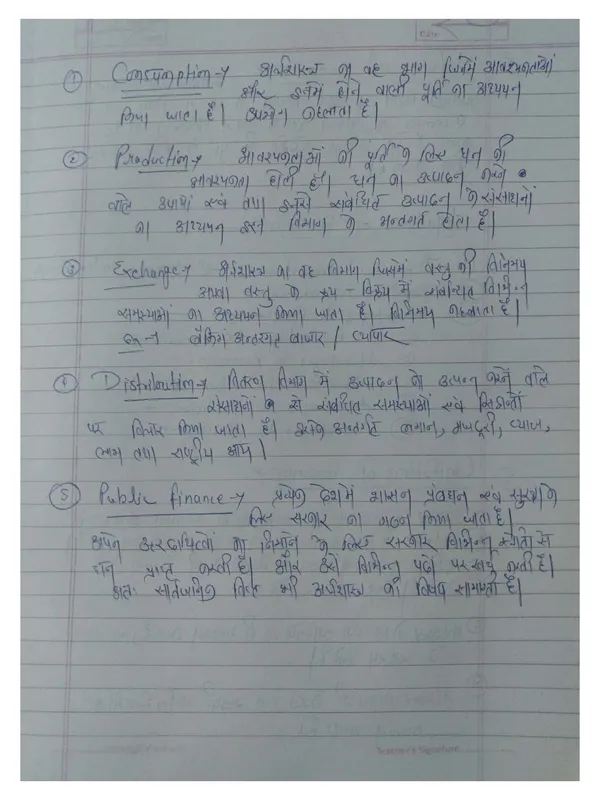 ① Consumption → अर्थशास्त्र का वह भाग जिसमें आवश्यकताओं
और इनमें होने वाली पूर्ति का अध्ययन
किया जाता है। उपभोग कहलाता है।
② Production → आवश्यकताओं की पूर्ति के लिए धन की
आवश्यकता होती है। धन का उत्पादन करने
वाले उपायों एवं तथा इनसे संबंधित उत्पादन के संसाधनों
का अध्ययन इस विभाग के अन्तर्गत होता है।
③ Exchange → अर्थशास्त्र का वह विभाग जिसमें वस्तु की विनिमय
अथवा वस्तु के क्रय - विक्रय में संबंधित विभिन्न
समस्याओं का अध्ययन किया जाता है। विनिमय कहलाता है।
बैंकिंग अन्तरराष्ट्रीय बाजार / व्यापार
④ Distribution → वितरण विभाग में उत्पादन को उत्पन्न करने वाले
संसाधनों से संबंधित समस्याओं एवं सिद्धान्तों
पर विचार किया जाता है। इसके अन्तर्गत लगान, मजदूरी, ब्याज,
लाभ तथा राष्ट्रीय आय।
⑤ Public finance → प्रत्येक देश में शासन प्रबंधन एवं सुरक्षा के
लिए सरकार का गठन किया जाता है।
अपने उत्तरदायित्वों का निभाने के लिए सरकार विभिन्न स्रोतों से
धन प्राप्त करती है। और उसे विभिन्न पदों पर खर्च करती है।
अतः सार्वजनिक वित्त भी अर्थशास्त्र की विषय सामग्री है।